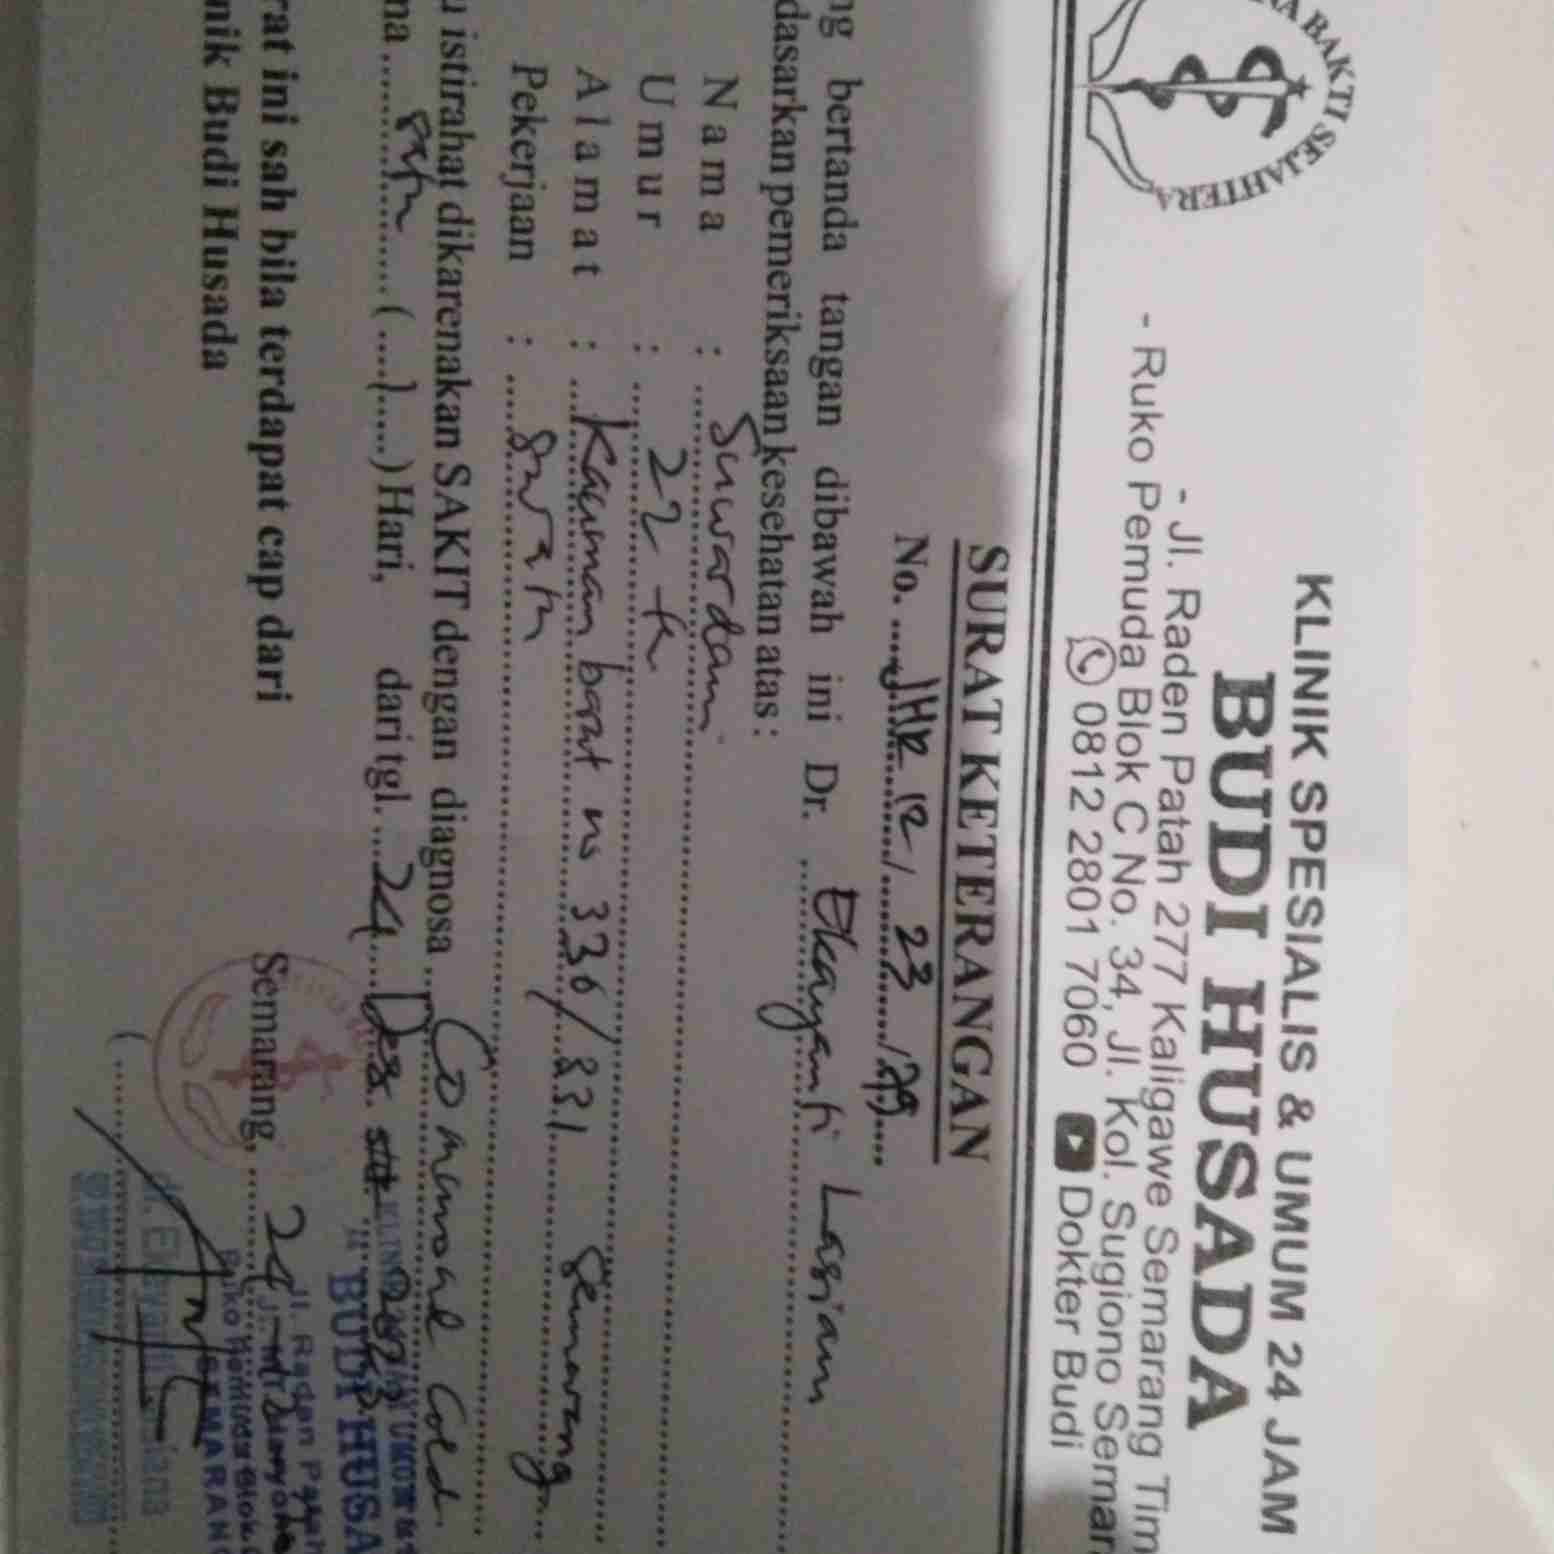 BAKTI SEJAHTERA
KLINIK SPESIALIS & UMUM 24 JAM
BUDI HUSADA
- Jl. Raden Patah 277 Kaligawe Semarang Tim
- Ruko Pemuda Blok C No. 34, Jl. Kol. Sugiono Semar
0812 2801 7060 Dokter Budi
SURAT KETERANGAN
No. / 23 /
ng bertanda tangan dibawah ini Dr. Ekayanti Lasiam
dasarkan pemeriksaan kesehatan atas :
Nama : Suwardami
Umur : 22 th
Alamat : Kauman barat no 336/331 Semarang
Pekerjaan : swasta
u istirahat dikarenakan SAKIT dengan diagnosa Common Cold
na satu (1) Hari, dari tgl. 24 Des
rat ini sah bila terdapat cap dari
nik Budi Husada
Semarang, 24
BUDI HUSA
Jl. Raden Patah
Ruko Pemuda Blok
SEMARANG